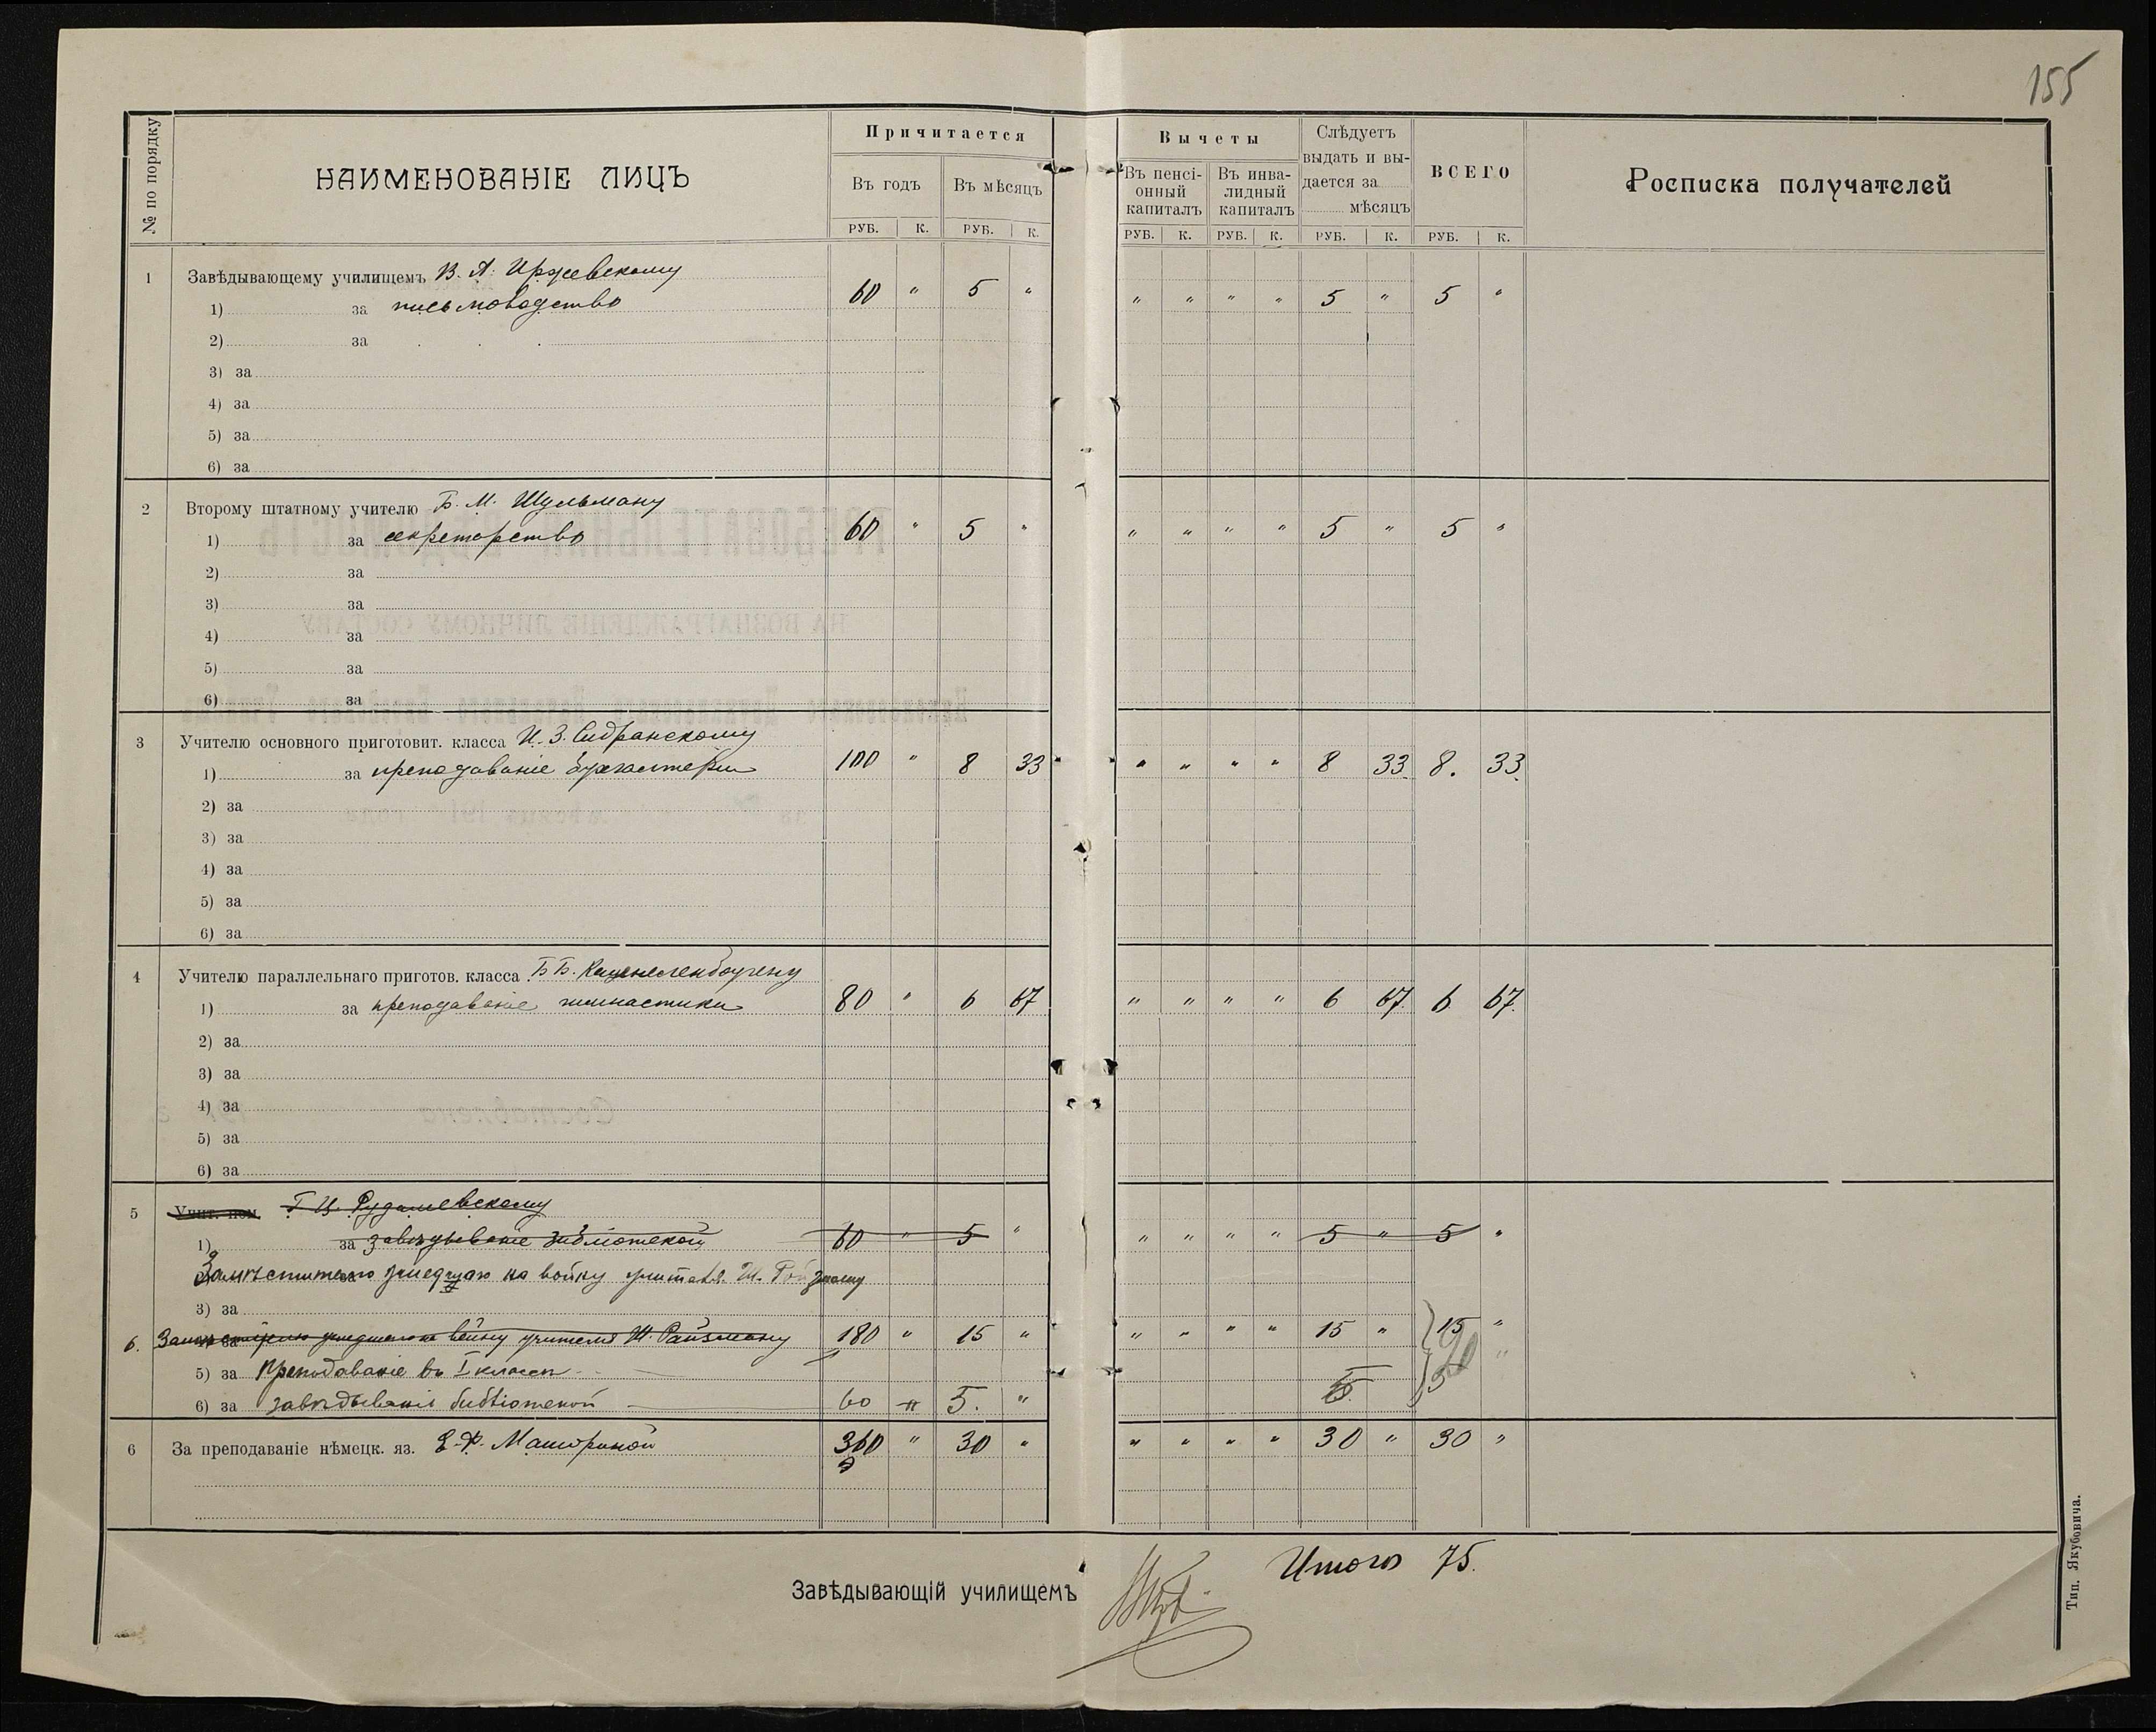 155
№ по порядку
НАИМЕНОВАНІЕ ЛИЦЪ
Причитается
Въ годъ Въ мѣсяцъ
РУБ. К. РУБ. К.
Вычеты
Въ пенсі-онный капиталъ
Въ инва-лидный капиталъ
РУБ. К. РУБ. К.
Слѣдуетъ выдать и вы-дается за мѣсяцъ
РУБ. К.
ВСЕГО
РУБ. К.
Росписка получателей
1 Завѣдывающему училищемъ В. А.
1) за письмоводство 60 " 5 " " " " " 5 " 5 "
2) за
3) за
4) за
5) за
6) за
2 Второму штатному учителю Б. М. Шульману
1) за секретарство 60 " 5 " " " " " 5 " 5 "
2) за
3) за
4) за
5) за
6) за
3 Учителю основного приготовит. класса И. З. Сидранскому
1) за преподаваніе бухгалтеріи 100 " 8 33 " " " " 8 33 8. 33.
2) за
3) за
4) за
5) за
6) за
4 Учителю параллельнаго приготов. класса Б Б. Каценеленбогену
1) за преподаваніе гимнастики 80 " 6 67 " " " " 6 67. 6 67.
2) за
3) за
4) за
5) за
6) за
5 Учит. пом. Г. Ц. Рудашевскому
1) за завѣдываніе библіотекой 60 " 5 " " " " " 5 " 5 "
Замѣстителю на войну учителя Ш.
3) за
6. Замѣстителю на войну учителя Ш. Райзману 180 " 15 " " " " " 15 " 15 "
20 "
5) за Преподаваніе въ I классѣ
6) за завѣдываніе библіотекой 60 " 5. " 5 5
6 За преподаваніе нѣмецк. яз. Е. Ф. 360 " 30 " " " " " 30 " 30 "
Завѣдывающій училищемъ
Итого 75.
Тип. Якубовича.